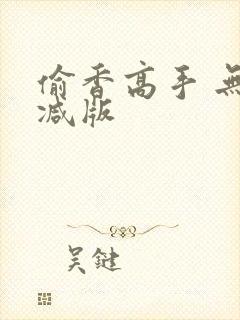 偷香高手 無
减版
吴鍵